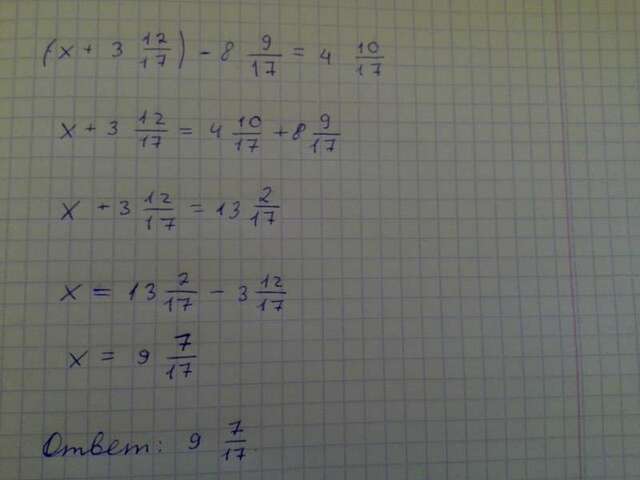 (x + 3 12/17) - 8 9/17 = 4 10/17
x + 3 12/17 = 4 10/17 + 8 9/17
x + 3 12/17 = 13 2/17
x = 13 2/17 - 3 12/17
x = 9 7/17
Ответ: 9 7/17